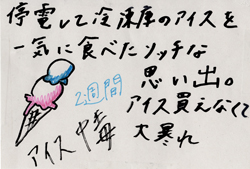 停電して冷凍庫のアイスを
一気に食べたリッチな
思い出。
2週間
アイス買えなくて
大暴れ
アイス中毒